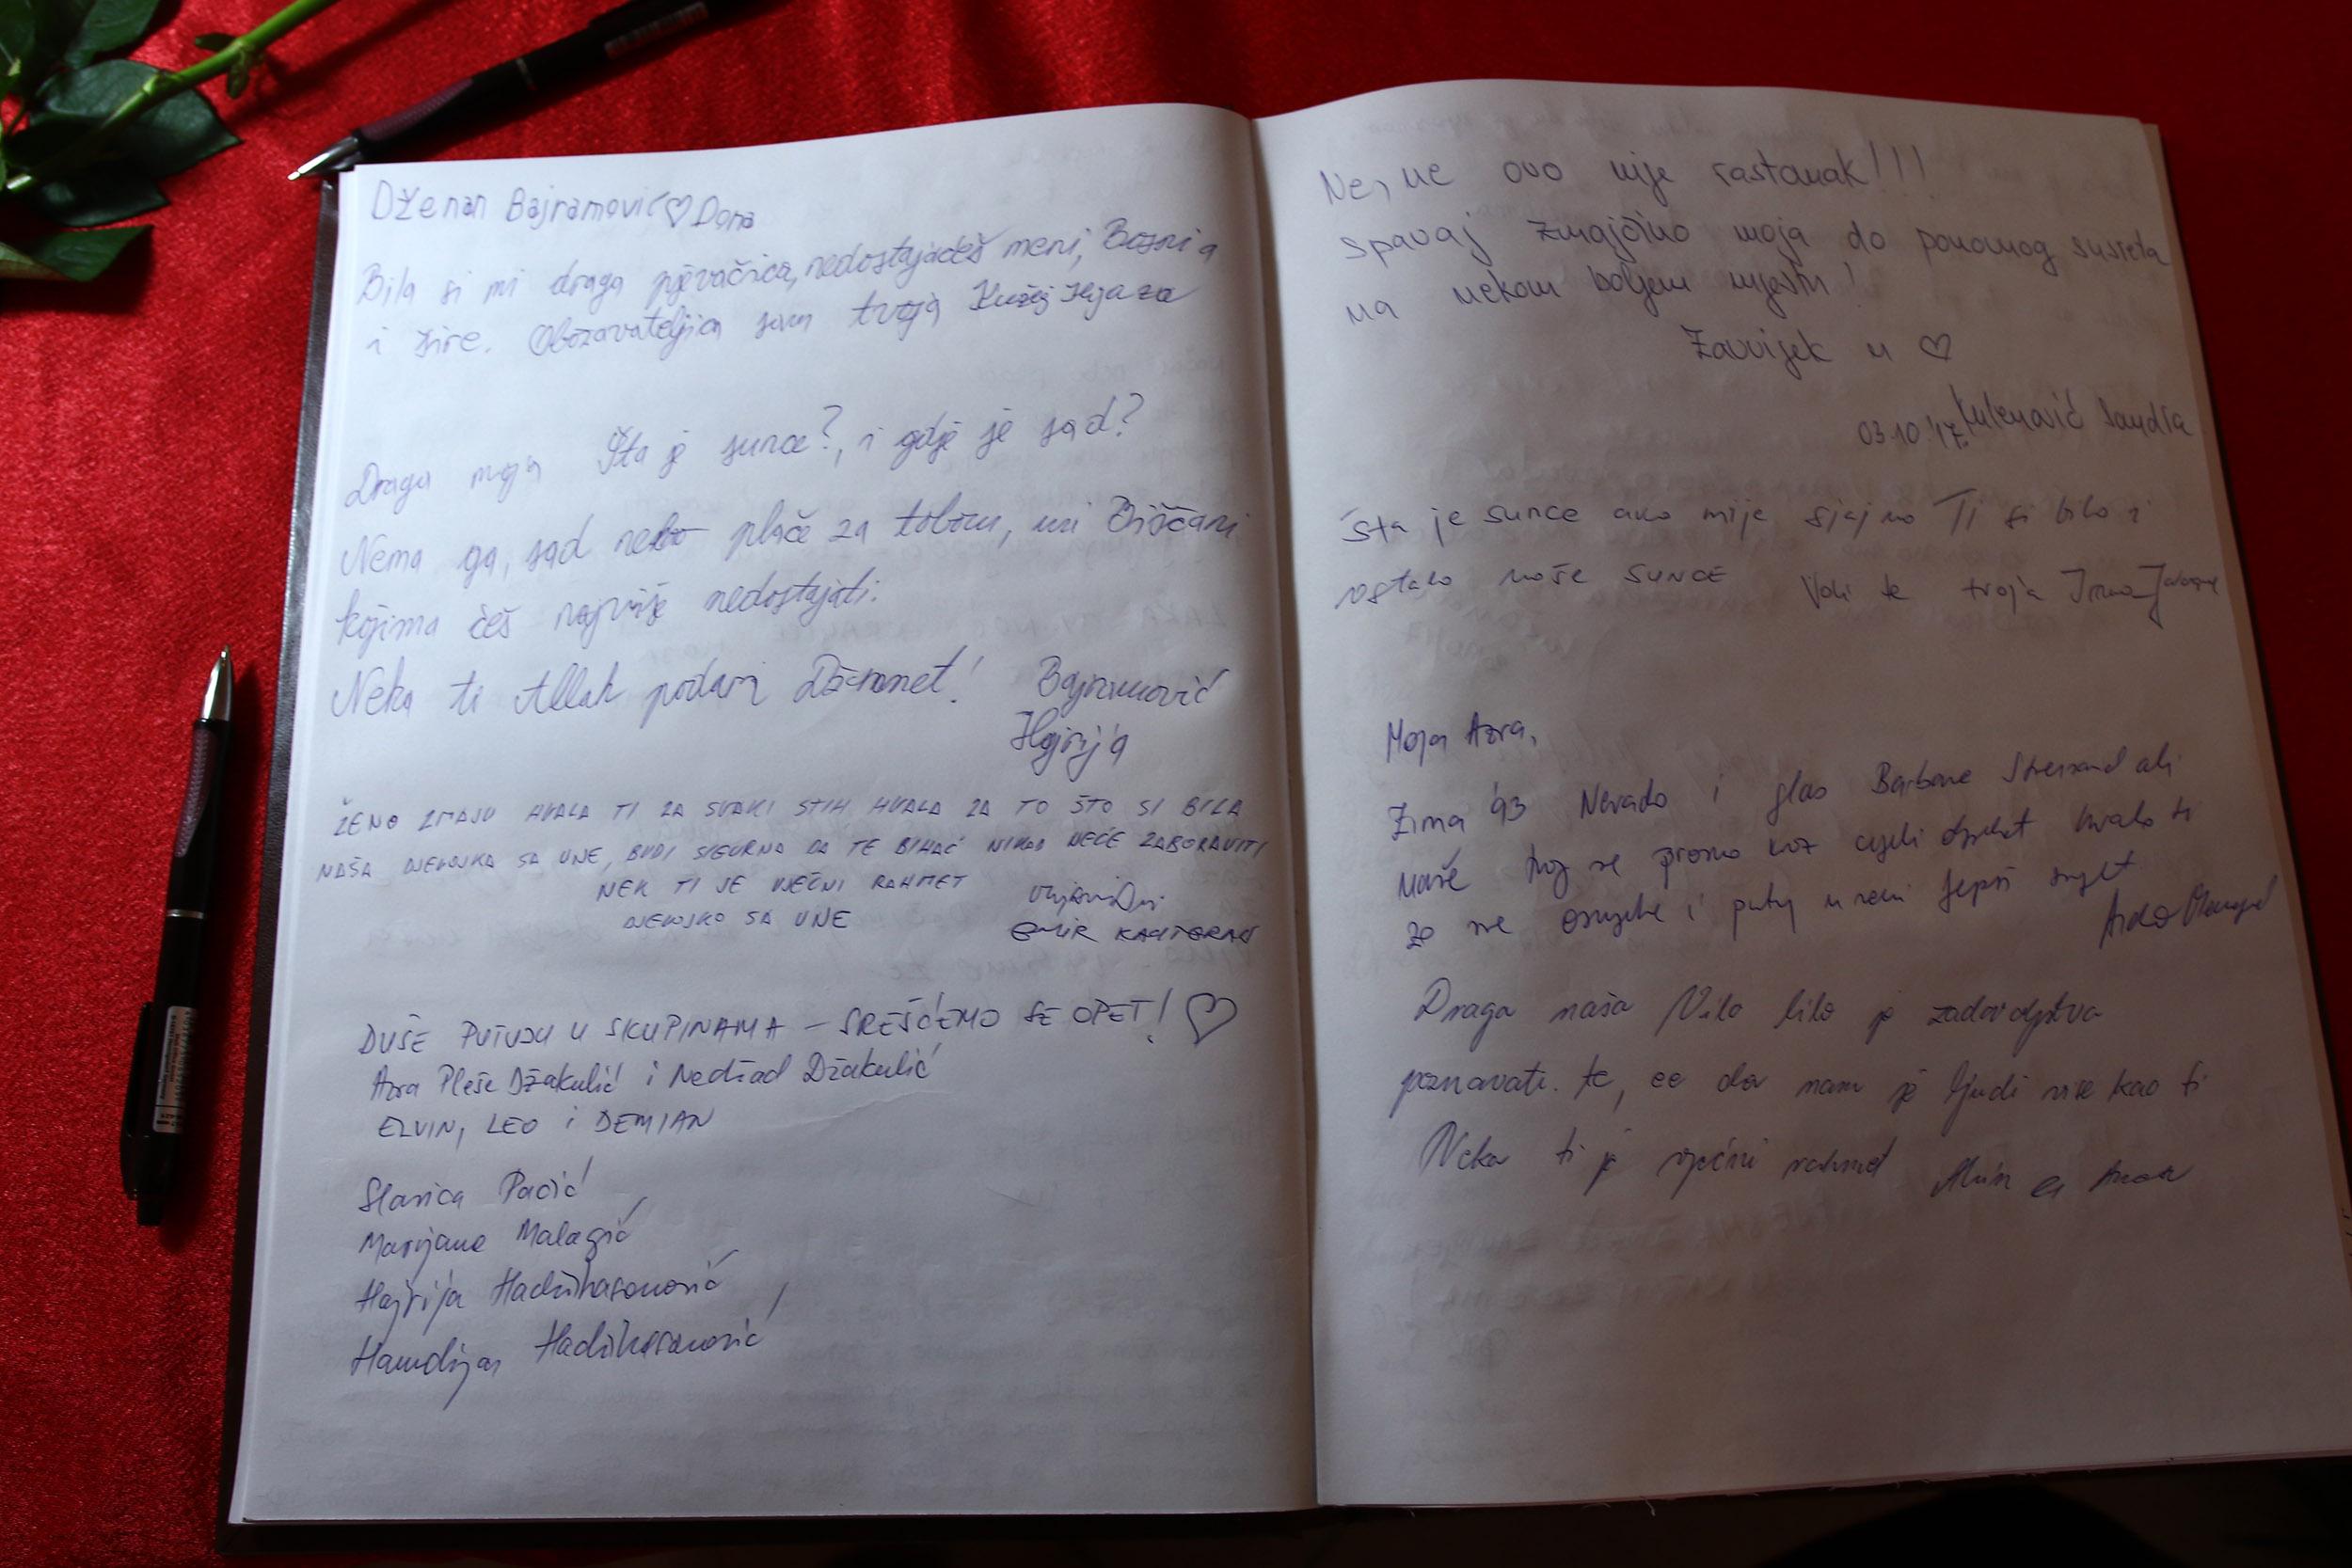 Dženan Bajramović ♡ Dona
Bila si mi draga pjevačica, nedostajaćeš meni, Bosni a
i šire. Obožavateljica sam tvoja
Šta je sunce?, i gdje je sad?
Draga moja
Nema ga, sad nebo plače za tobom, mi Bišćani
kojima ćeš najviše nedostajati.
Neka ti Allah podari Džennet! Bajramović
Hajrija
ŽENO ZMAJU HVALA TI ZA SVAKI STIH HVALA ZA TO ŠTO SI BILA
NAŠA DJEVOJKA SA UNE, BUDI SIGURNA DA TE BIHAĆ NIKAD NEĆE ZABORAVITI
NEK TI JE VJEČNI RAHMET
DJEVOJKO SA UNE
EMIR
DUŠE PUTUJU U SKUPINAMA – SREŠĆEMO SE OPET! ♡
Azra Pleše Džakulić i Nedžad Džakulić
ELVIN, LEO i DEMIAN
Slavica Pacić
Marijana Malagić
Hajrija Hadžihasanović
Hamdija Hadžihasanović
Ne, ne ovo nije rastanak!!!
Spavaj zmajčino moja do ponovnog susreta
na nekom boljem mjestu!
Zauvijek u ♡
03.10.'17. Kulenović Sandra
Šta je sunce ako nije sjajno Ti si bilo i
ostalo naše SUNCE Voli te tvoja Irma
Moja Azra,
Zima '93 Nevado i glas Barbare Streisand ali
naše kroz cijeli hvala ti
za sve i putuj u svijet
Draga naša Vilo bilo je zadovoljstvo
poznavati te, da nam je ljudi više kao ti
Neka ti je vječni rahmet